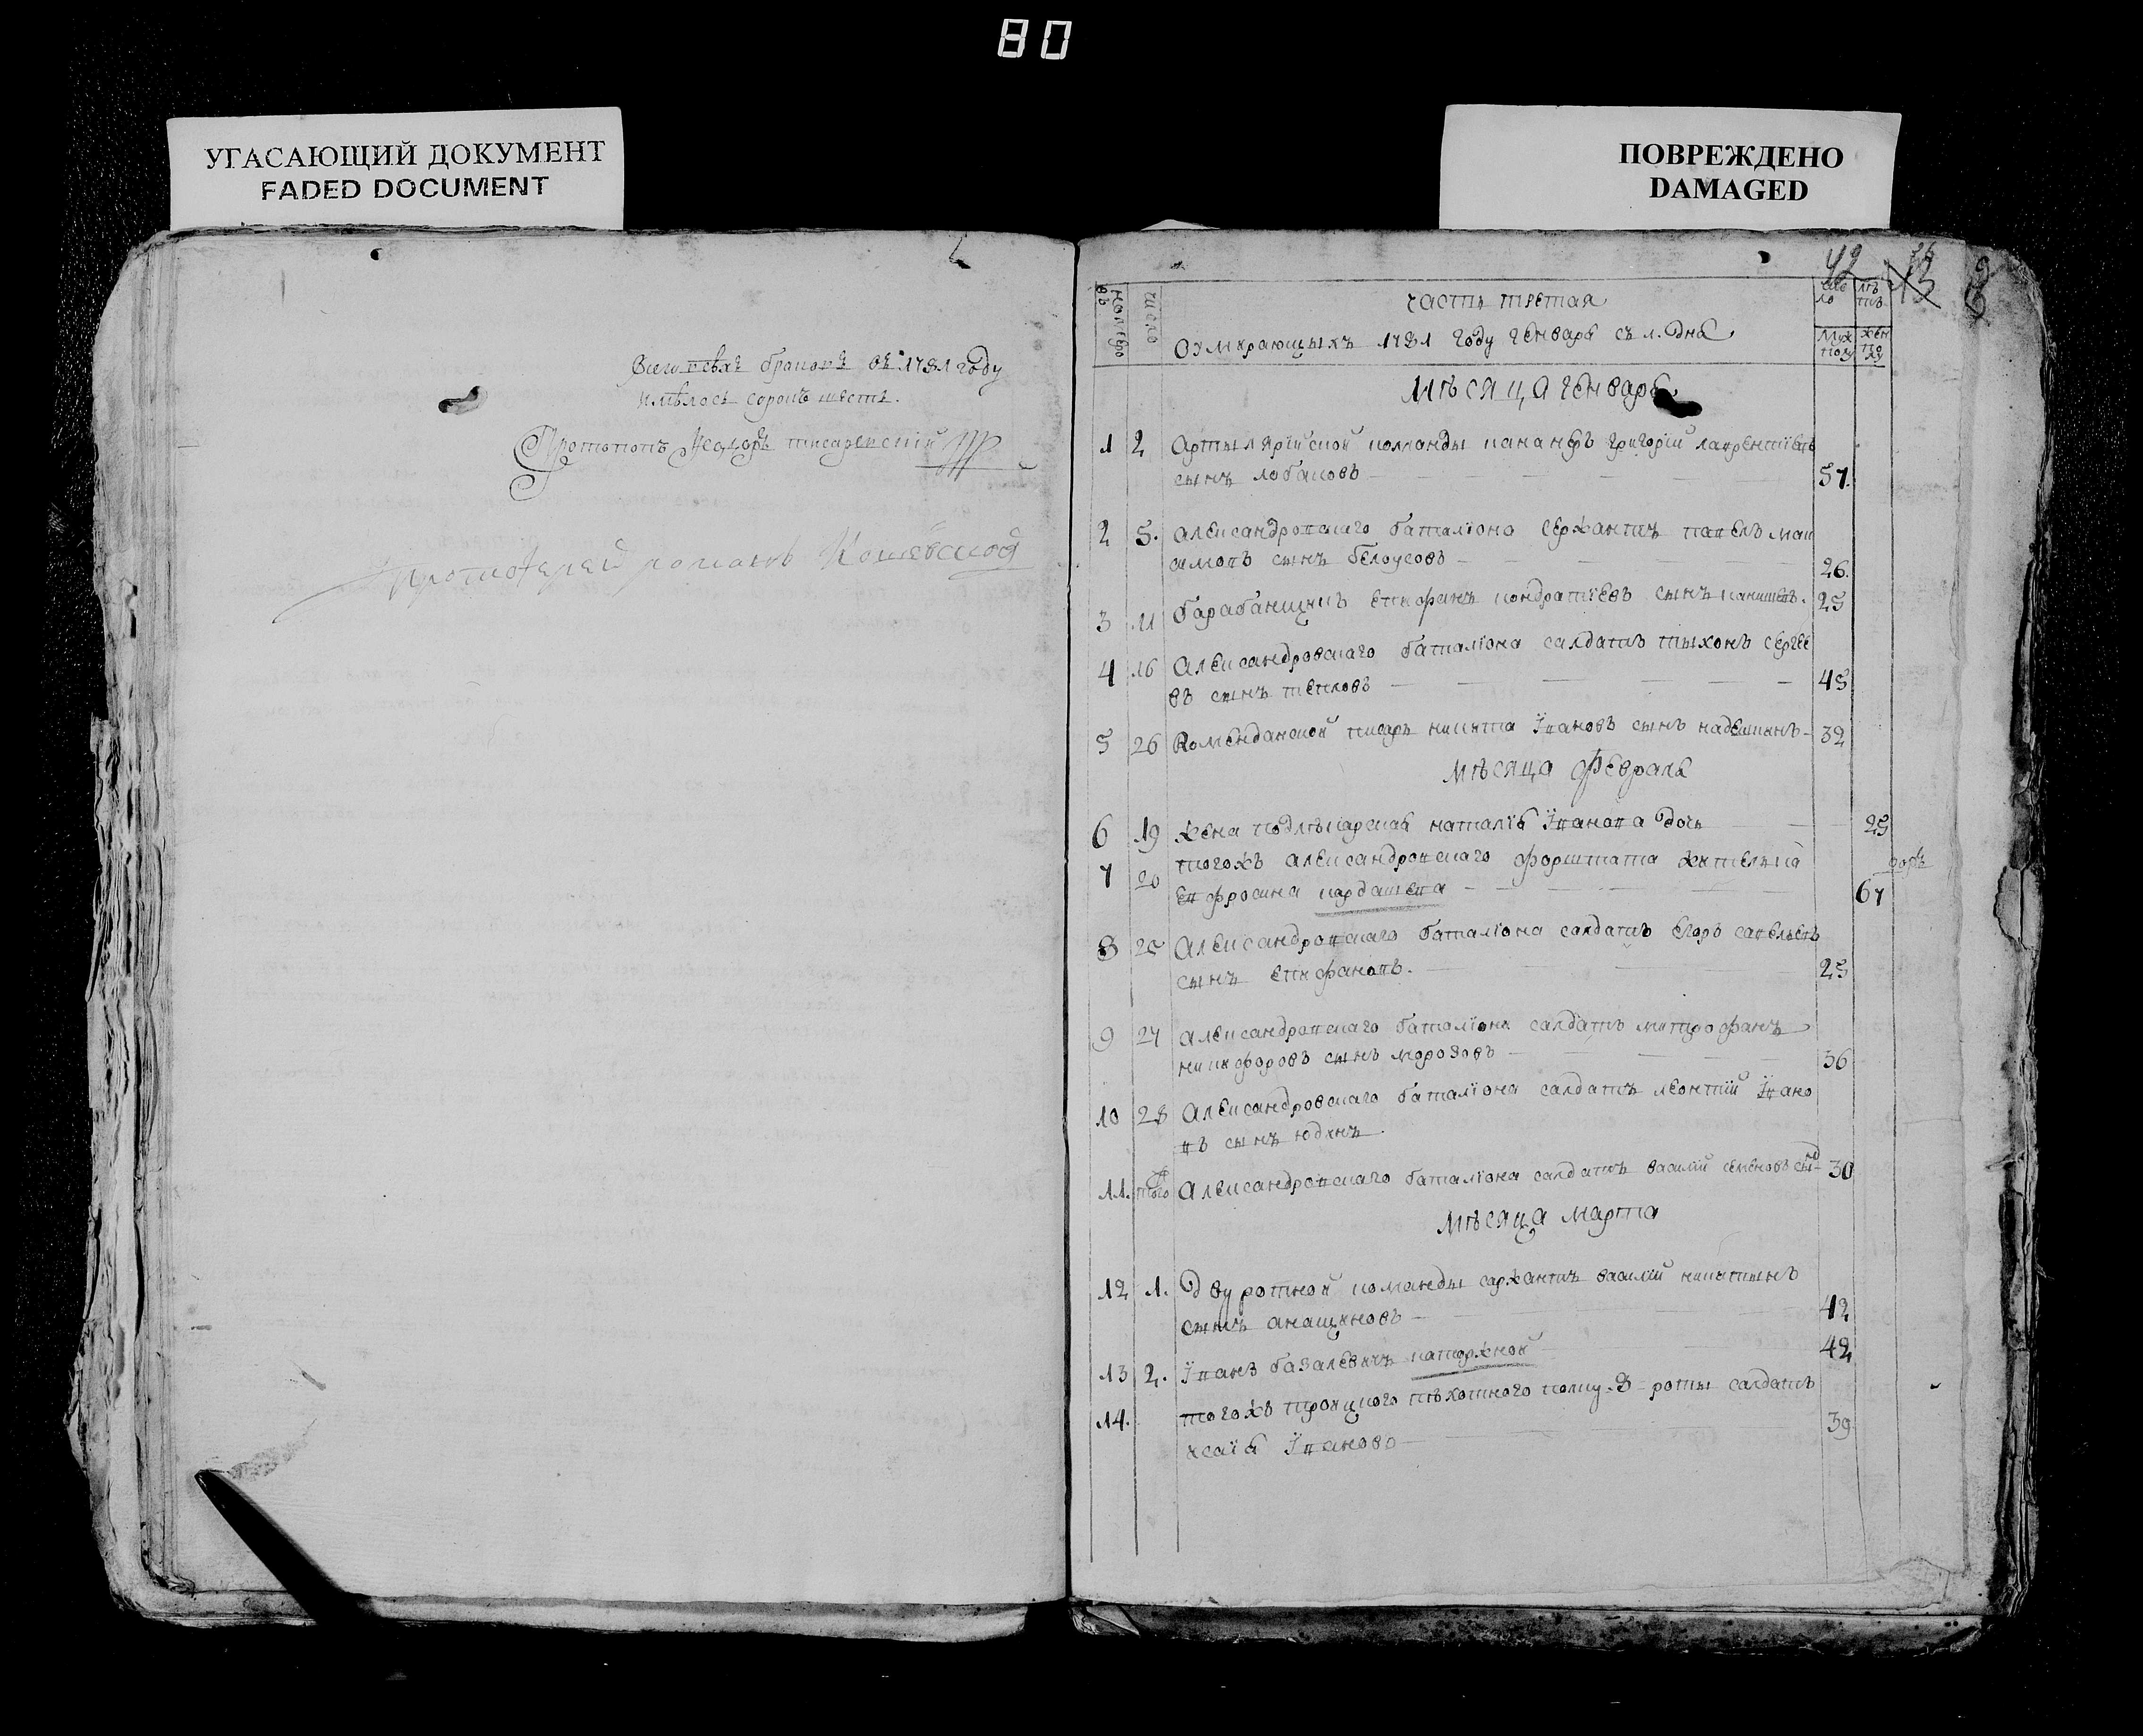 80
УГАСАЮЩИЙ ДОКУМЕНТ
FADED DOCUMENT
ПОВРЕЖДЕНО
DAMAGED
браковъ въ 1781 году
имѣлось сорокъ шесть.
Протопопъ Ѳедоръ писаревский
Протоиерей романъ Кошевской
42
13
часть третая
О умирающыхъ 1781 году генваря съ 1. дня
число
лѣтъ
Муж полу
жен полу
число
мѣсяца генваря
1 2 Артылярїиской команды кананеръ григорїи лаврентиевъ
сынъ лобановъ 57.
2 5. александровскаго баталїона сержантъ павелъ мак
симовъ сынъ белоусовъ 26.
3 11 барабанщикъ епифанъ кондратїевъ сынъ 25
4 16 Александровскаго баталїона салдатъ тыхонъ сергее
въ сынъ тепловъ 45
5 26 Комендански писарь никита Їивановъ сынъ 32
мѣсяца февраля
6 19 жена наталїя Їванова дочь 25
7 20 тогожъ александровскаго форштата жителька
евфросина кардашева 67
8 25 Александровскаго баталїона салдатъ егоръ савельевъ
сынъ епифановъ. 25
9 27 александровскаго баталїона салдатъ митрофанъ
никифоровъ сынъ морозовъ 36
10 28 Александровскаго баталїона салдатъ леонтїи Їивано
въ сынъ юдинъ.
11. того Александровскаго баталїона салдатъ василїи семеновъ сынъ 30
мѣсяца марта
12 1. Двуротной команды саржантъ василїи никитинъ
сынъ анащиновъ 42
13 2. Їванъ базалевичъ каторжной 42
14. тогожъ троицкого пѣхотного полку 3 роты салдатъ
исаїя Їивановъ 39